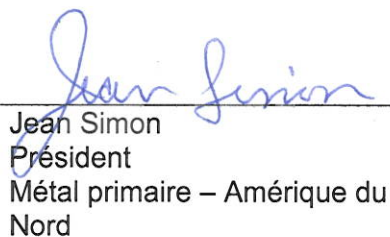 Jean Simon
Jean Simon
Président
Métal primaire – Amérique du
Nord